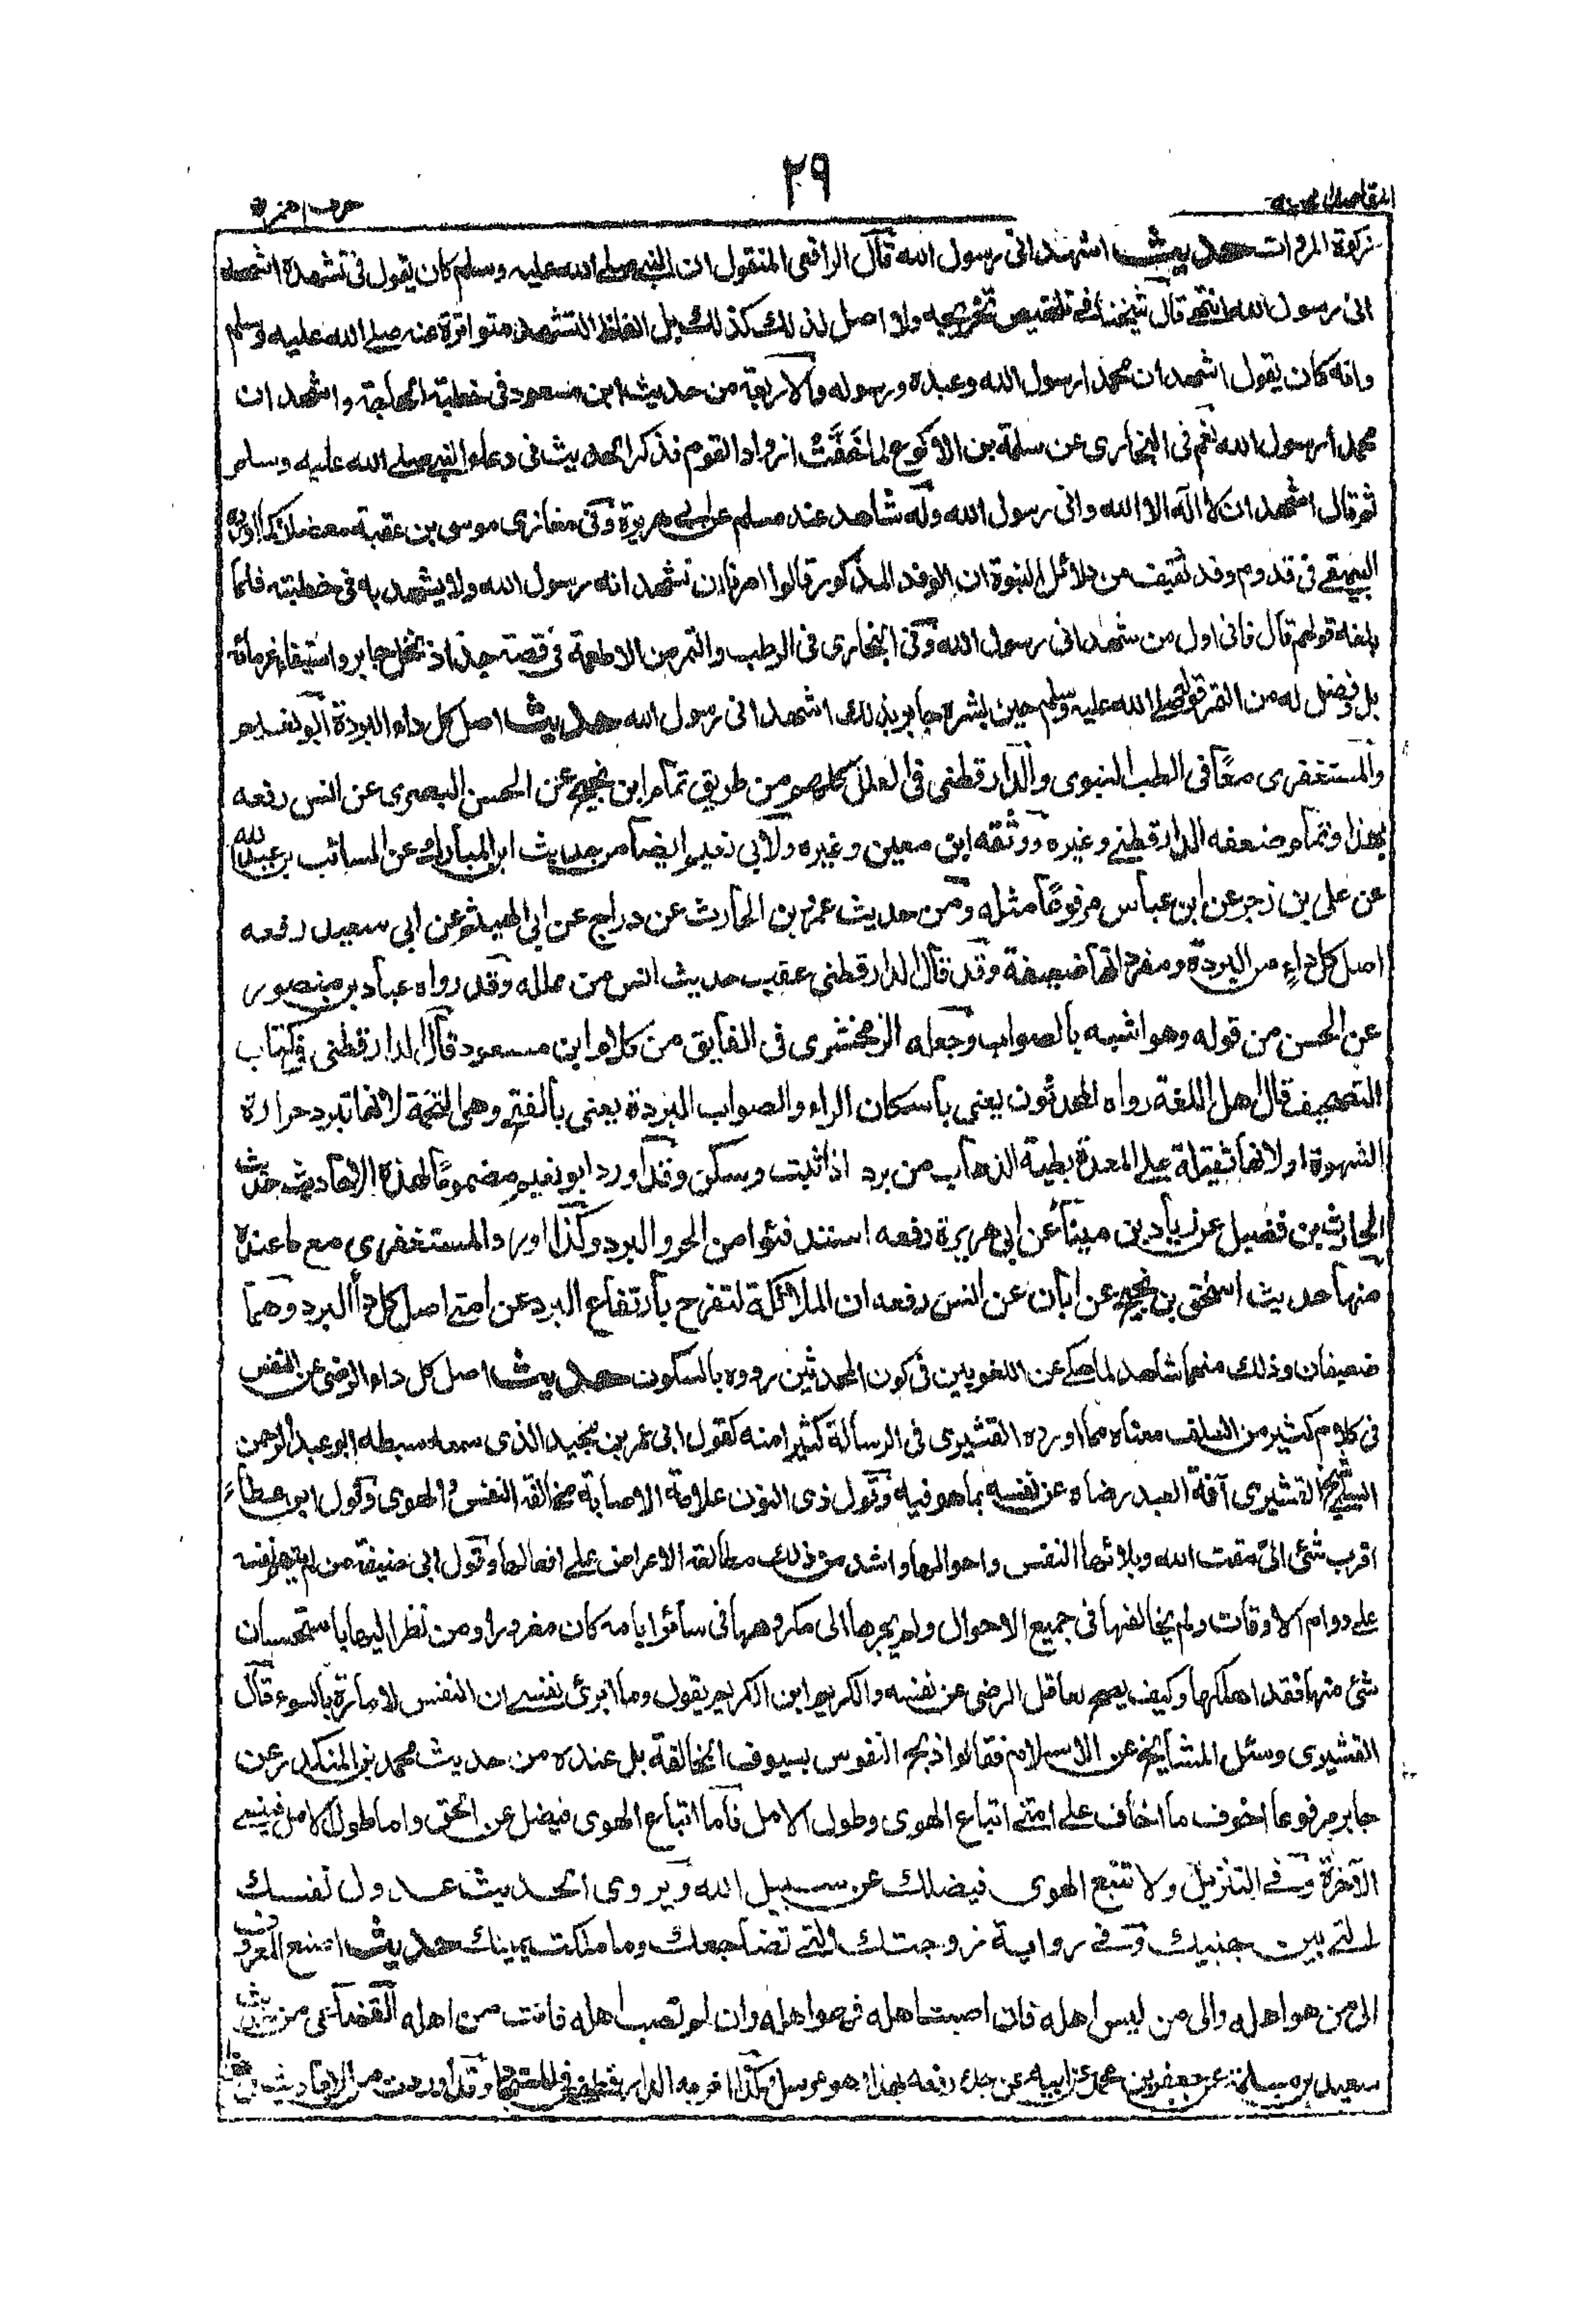 ٢٩
المقاصد الحسنة
حرف الهمزة
زكوة المروات حديث اشهد انى رسول الله قال الرافعى المنقول ان النبى صلى الله عليه وسلم كان يقول فى تشهده اشهد
انى رسول الله انتهى قال شيخنا فى تلخيص تخريجه ولا اصل لذلك كذلك بل الفاظ التشهد متواترة عنه صلى الله عليه وسلم
وانه كان يقول اشهد ان محمدا رسول الله وعبده ورسوله وللاربعة من حديث ابن مسعود فى خطبة الحاجة واشهد ان
محمدا رسول الله نعم فى البخارى عن سلمة بن الاكوع لما خفت ازواد القوم فذكر الحديث فى دعاء النبى صلى الله عليه وسلم
ثم قال اشهد ان لا اله الا الله وانى رسول الله وله شاهد عند مسلم عن ابى هريرة وفى مغازى موسى بن عقبة معضلا كذا اورده
البيهقى فى قدوم وفد ثقيف من دلائل النبوة ان الوفد المذكور قالوا امرنا ان نشهد انه رسول الله ولا يشهد به فى خطبته فلما
بلغه قولهم قال فانى اول من شهد انى رسول الله وفى البخارى فى الرطب والتمر من الاطعمة فى قصة جذاذ نخل جابر واستيفاء غرمائه
بل وفضل له من التمر قوله صلى الله عليه وسلم حين بشره جابر بذلك اشهد انى رسول الله حديث اصل كل داء البردة ابو نعيم
والمستغفرى معًا فى الطب النبوى والدارقطنى فى العلل كلهم من طريق تمام ابن نجيح عن الحسن البصرى عن انس رفعه
بهذا وتمام ضعفه الدارقطنى وغيره ووثقه ابن معين وغيره ولابى نعيم ايضا من حديث ابن المبارك عن السائب بن عبد الله
عن على بن زحر عن ابن عباس مرفوعًا مثله ومن حديث عمرو بن الحارث عن دراج عن ابى الهيثم عن ابى سعيد رفعه
اصل كل داءٍ من البردة ومفرداتها ضعيفة وقد قال الدارقطنى عقيب حديث انس من علله وقد رواه عباد بن منصور
عن الحسن من قوله وهو اشبه بالصواب وجعله الزمخشرى فى الفايق من كلام ابن مسعود قال الدارقطنى فى كتاب
التصحيف قال اهل اللغة رواه المحدثون يعنى باسكان الراء والصواب البردة يعنى بالفتح وهى التخمة لانها تبرد حرارة
الشهوة او لانها ثقيلة على المعدة بطية الذهاب من برد اذا ثبت وسكن وقد اورد ابو نعيم مضمومًا لهذه الاحاديث حديث
الحارث بن فضيل عن زياد بن مينا عن ابى هريرة رفعه استدفئوا من الحر والبرد وكذا اورد المستغفرى مع ما عنده
منها حديث اسحق بن نجيح عن ابان عن انس رفعه ان الملائكة لتفرح بارتفاع البرد عن امتى اصل كل داء البرد وهما
ضعيفان وذلك منهما شاهد لما حكى عن اللغويين فى كون المحدثين رووه بالسكون حديث اصل كل داء الرضى عن النفس
فى كلام كثير من السلف معناه مما اورده القشيرى فى الرسالة كثيرا منه كقول ابى عمرو بن نجيد الذى سمعه سبطه ابو عبد الرحمن
السلمى شيخ القشيرى آفة العبد رضاه عن نفسه بما هو فيه وقول ذى النون علامة الاصابة مخالفة النفس والهوى وقول ابن عطاء
اقرب شئ الى مقت الله وبلائها النفس واحوالها واشد من ذلك مطالعة الاعراض على افعالها وقول ابى حنيفة من لم يتهم نفسه
على دوام الاوقات ولم يخالفها فى جميع الاحوال ولم يجرها الى مكروهها فى سائر ايامه كان مغرورا ومن نظر اليها باستحسان
شئ منها فقد اهلكها وكيف يصح لعاقل الرضى عن نفسه والكريم ابن الكريم يقول وما ابرئ نفسى ان النفس لامارة بالسوء قال
القشيرى وسئل المشايخ عن الاسلام فقالوا ذبح النفوس بسيوف المخالفة بل عنده من حديث محمد بن المنكدر عن
جابر مرفوعا اخوف ما اخاف على امتى اتباع الهوى وطول الامل فاما اتباع الهوى فيضل عن الحق واما طول الامل فينسى
الآخرة وفى التنزيل ولا تتبع الهوى فيضلك عن سبيل الله ويروى الحديث عدول نفسك
التى بين جنبيك وفى رواية زوجتك التى تضاجعك وما ملكت يمينك حديث اصنع المعروف
الى من هو اهله والى من ليس اهله فان اصبت اهله فهو اهله وان لم تصب اهله فانت من اهله القضاعى من حديث
سعيد بن مسلمة عن جعفر بن محمد عن ابيه عن جده رفعه بهذا وهو مرسل وكذا اخرجه الدارقطنى فى المستجاد وقد اوردت من الاحاديث فى